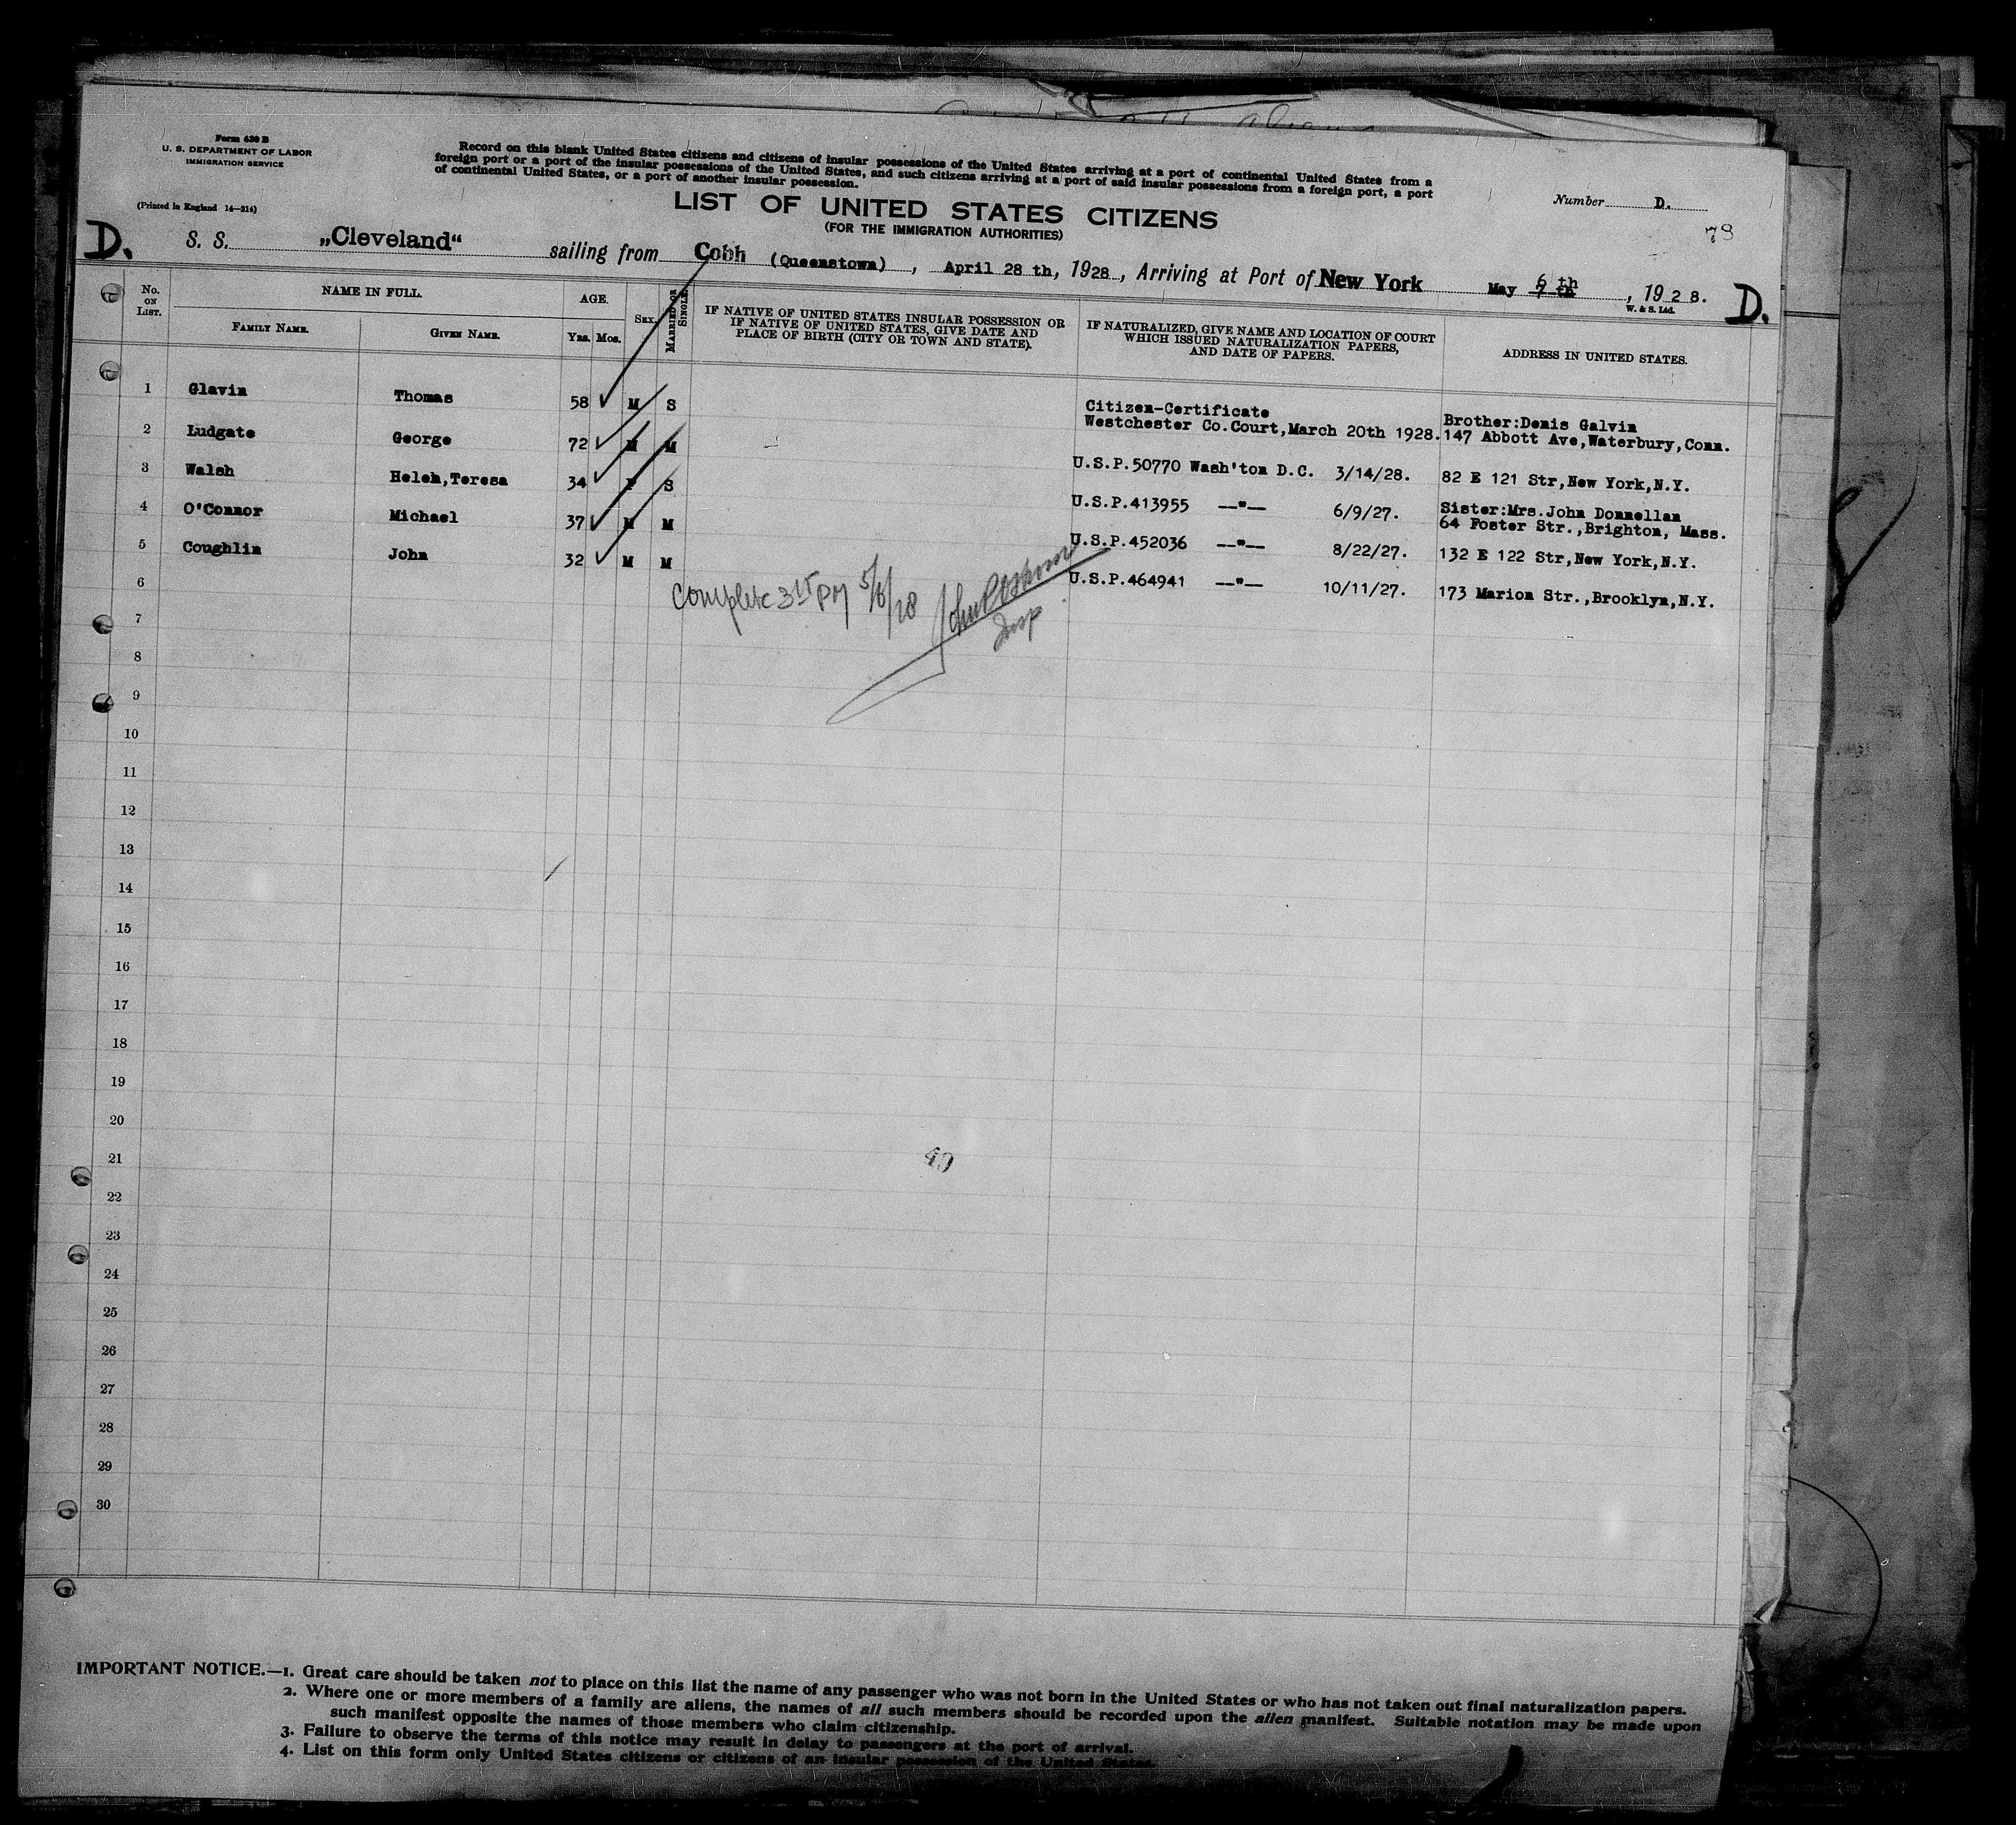 Form 630 B
U. S. DEPARTMENT OF LABOR
IMMIGRATION SERVICE
(Printed in England 14—214)
Record on this blank United States citizens and citizens of insular possessions of the United States arriving at a port of continental United States from a
foreign port or a port of the insular possessions of the United States, and such citizens arriving at a port of said insular possessions from a foreign port, a port
of continental United States, or a port of another insular possession.
Number D.
78
LIST OF UNITED STATES CITIZENS
(FOR THE IMMIGRATION AUTHORITIES)
D. S. S. „Cleveland“ sailing from Cobh (Queenstown), April 28 th, 1928, Arriving at Port of New York May 7 th 6 th, 1928. D.
W. & S. Ltd.
No. ON LIST. NAME IN FULL. AGE. SEX. MARRIED OR SINGLE.
FAMILY NAME. GIVEN NAME. Yrs. Mos.
IF NATIVE OF UNITED STATES INSULAR POSSESSION OR
IF NATIVE OF UNITED STATES, GIVE DATE AND
PLACE OF BIRTH (CITY OR TOWN AND STATE).
IF NATURALIZED, GIVE NAME AND LOCATION OF COURT
WHICH ISSUED NATURALIZATION PAPERS,
AND DATE OF PAPERS.
ADDRESS IN UNITED STATES.
1 Glavin Thomas 58 M S Citizen-Certificate Brother:Denis Galvin
Westchester Co.Court,March 20th 1928. 147 Abbott Ave,Waterbury,Conn.
2 Ludgate George 72 M M U.S.P.50770 Wash'ton D.C. 3/14/28. 82 E 121 Str,New York,N.Y.
3 Walsh Helen,Teresa 34 F S U.S.P.413955 —"— 6/9/27. Sister:Mrs.John Donnellan
64 Foster Str.,Brighton, Mass.
4 O'Connor Michael 37 M M U.S.P.452036 —"— 8/22/27. 132 E 122 Str,New York,N.Y.
5 Coughlin John 32 M M U.S.P.464941 —"— 10/11/27. 173 Marion Str.,Brooklyn,N.Y.
Complete 3 15 PM 5/6/28
Insp
6
7
8
9
10
11
12
13
14
15
16
17
18
19
20
21
22
23
24
25
26
27
28
29
30
49
IMPORTANT NOTICE.—1. Great care should be taken not to place on this list the name of any passenger who was not born in the United States or who has not taken out final naturalization papers.
2. Where one or more members of a family are aliens, the names of all such members should be recorded upon the alien manifest. Suitable notation may be made upon
such manifest opposite the names of those members who claim citizenship.
3. Failure to observe the terms of this notice may result in delay to passengers at the port of arrival.
4. List on this form only United States citizens or citizens of an insular possession of the United States.